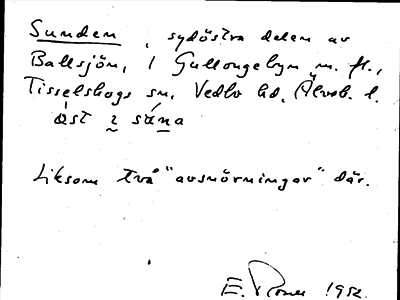 Sunden, sydöstra delen av
Ballsjön, i Gullongebyn m. fl.,
Tisselskogs sn. Vedbo hd. Älvsb. l.
äst i súna
Liksom två "avsnörningar" där.
E. 1952.